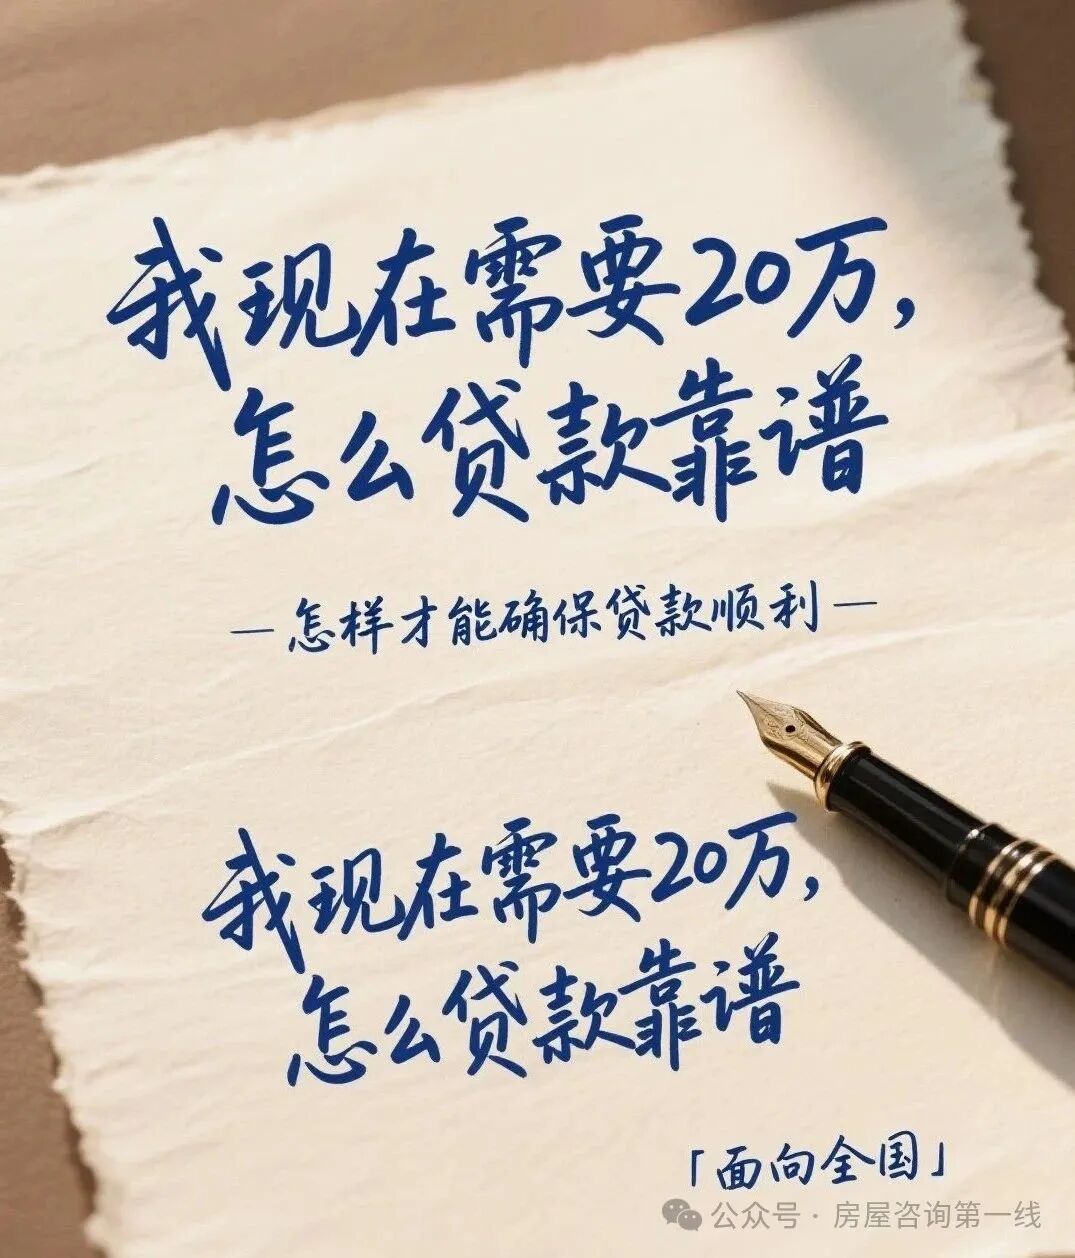 我现在需要20万,
怎么贷款靠谱
— 怎样才能确保贷款顺利 —
我现在需要20万,
怎么贷款靠谱
「面向全国」
公众号 · 房屋咨询第一线